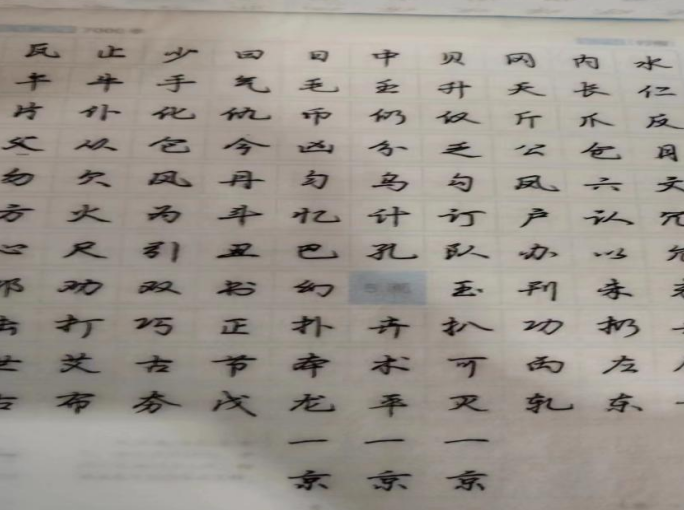 瓦 止 少 曰 日 中 贝 冈 内 水
午 牛 手 气 毛 壬 升 夭 长 仁
片 仆 化 仇 币 仍 仅 斤 爪 反
父 从 仓 今 凶 分 乏 公 仓 月
勿 欠 风 丹 匀 乌 勾 凤 六 文
方 火 为 斗 忆 计 订 户 认 冗
心 尺 引 丑 巴 孔 队 办 以 允
邓 劝 双 书 幻 玉 刊 未
击 打 巧 正 扑 卉 扒 功 扔
世 艾 古 节 本 术 可 丙 左
古 布 夯 戊 龙 平 灭 轧 东
一 一 一
京 京 京